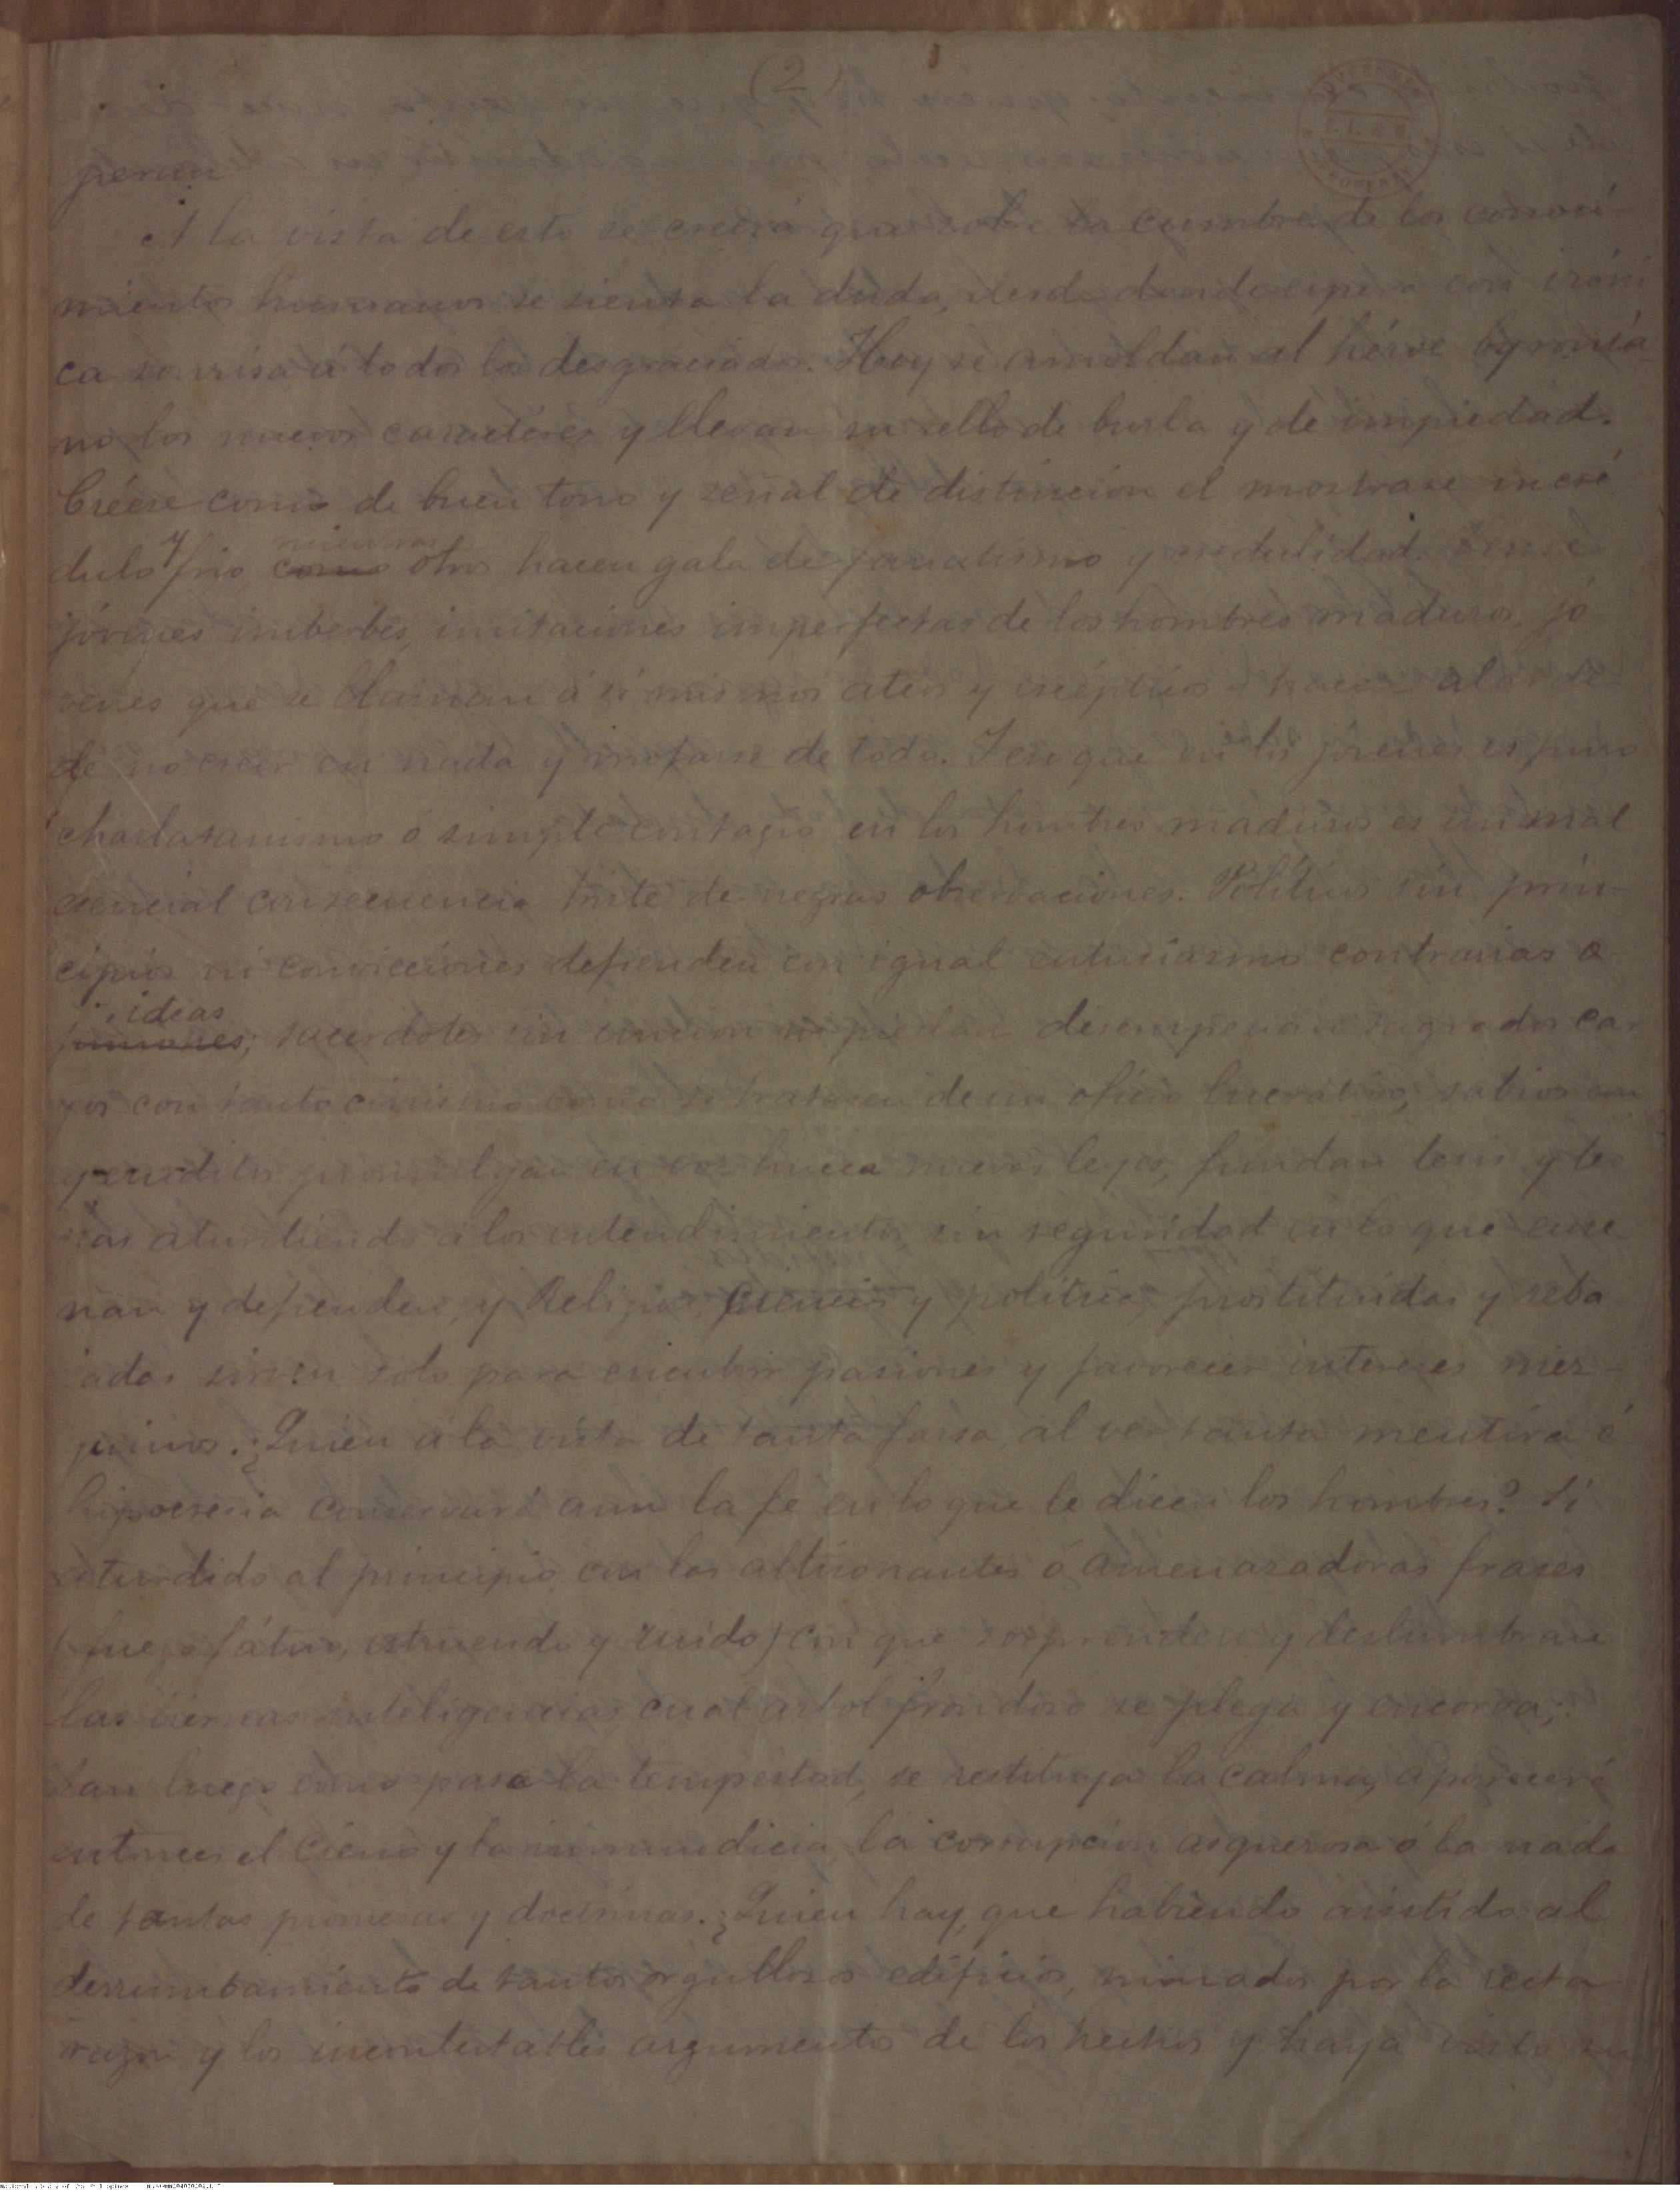 (2)
peran
A la vista de esto se creerá que sobre la cumbre de los conoci-
mientos humanos se sienta la duda, desde donde espera con iróni
ca sonrisa á todos los desgraciados. Hoy se amoldan al héroe byronia-
no los nuevos caractéres y llevan su sello de burla y de impiedad.
Créese como de buen tono y señal de distincion el mostrarse incré
dulo y frio, mientras otros hacen gala de fanatismo y credulidad.
jóvenes imberbes, imitaciones imperfectas de los hombres maduros, jó
venes que se llaman á sí mismos ateos y escépticos y hacen alarde
de no creer en nada y mofarse de todo. Y eso que en los jóvenes es puro
charlatanismo ó simple contagio en los hombres maduros es un mal
esencial consecuencia triste de negras observaciones. Políticos sin prin-
cipios ni convicciones defienden con igual entusiasmo contrarias
ideas; sacerdotes sin uncion ni piedad desempeñan sagrados car
gos con tanto cinismo como si trataran de un oficio lucrativo; sabios
y eruditos promulgan en voz hueca nuevas leyes, fundan tesis y teo
rias aturdiendo á los entendimientos, sin seguridad en lo que ense
ñan y defienden, y Religion, ciencia y política, prostituidas y reba
jadas sirven solo para encubrir pasiones y favorecer intereses mez-
quinos. ¿Quien á la vista de tanta farsa, al ver tanta mentira é
hipocresia conservará aun la fe en lo que le dicen los hombres? Si
aturdido al principio con las altisonantes ó amenazadoras frases
(fuego fátuo, estruendo y ruido) con que sorprenden y deslumbran
las tiernas inteligencias, cual arbol frondoso se plega y encorva;
tan luego como pasa la tempestad, se restituya la calma, aparecerá
entonces el cieno y la inmundicia, la corrupcion asquerosa ó la nada
de tantas promesas y doctrinas. ¿Quien hay, que habiendo asistido al
derrumbamiento de tantos orgullosos edificios, minados por la recta
razon y los incontestables argumentos de los hechos y haya visto su